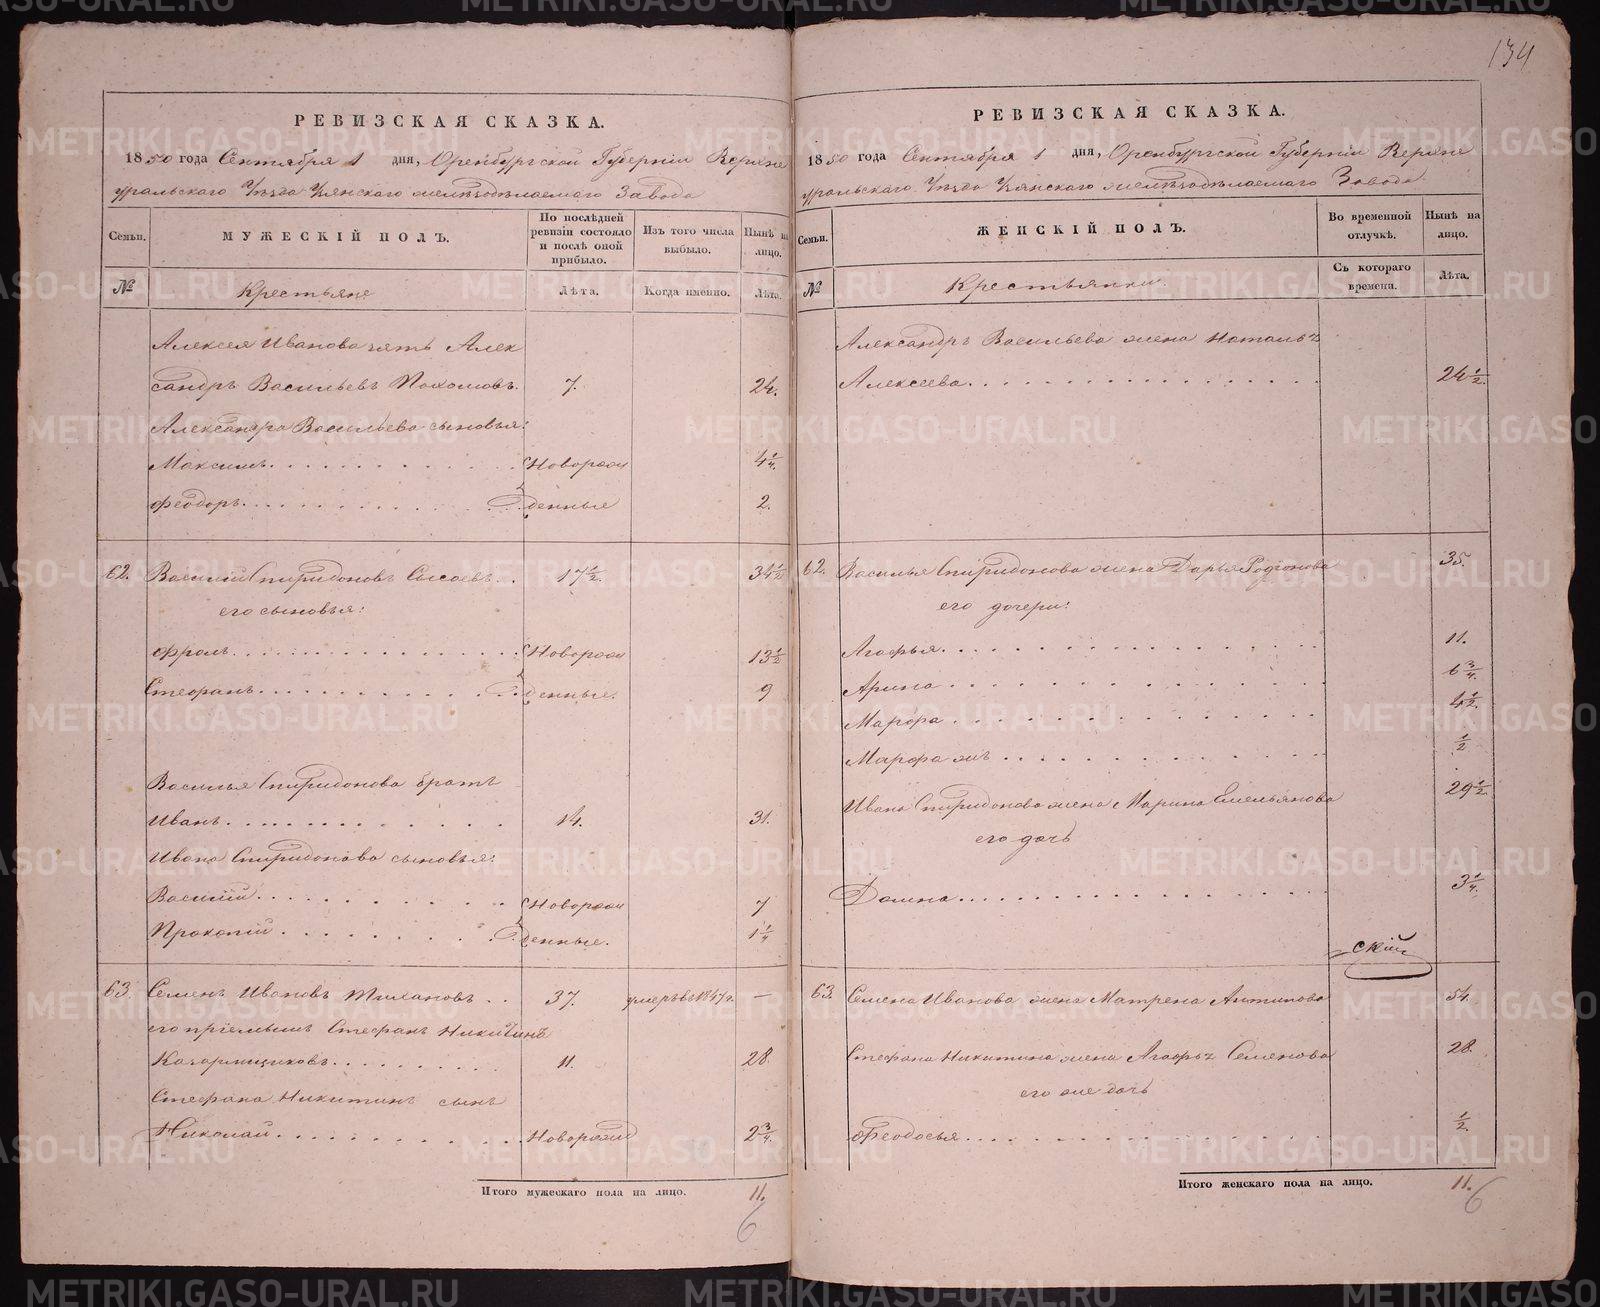 134
РЕВИЗСКАЯ СКАЗКА.
1850 года Сентября 1 дня, Оренбургской Губерніи Верхне
уральскаго Уѣзда Узянскаго желѣзодѣлаемаго Завода
Семьи.
МУЖЕСКІЙ ПОЛЪ.
По послѣдней ревизіи состояло и послѣ оной прибыло.
Изъ того числа выбыло.
Нынѣ на лицо.
№
Крестьяне
Лѣта.
Когда именно.
Лѣта.
Алексея Иванова зять Алек
сандръ Васильевъ Пахомовъ. 7. 24.
Александра Васильева сыновья:
Максимъ. Новорож 4 1/4.
Феодоръ. денные 2.
62. Василій Спиридоновъ Сысоевъ. 17 1/2. 34 1/2
его сыновья:
Фролъ. Новорож 13 1/2
Стефанъ. денные. 9
Василья Спиридонова братъ
Иванъ. 14. 31.
Ивана Спиридонова сыновья:
Василій. Новорож 7
Прокопій. денные. 1 1/4
63. Семенъ Ивановъ 37. умеръ въ 1847 г. —
его пріемышъ Стефанъ Никитинъ
11. 28.
Стефана Никитинъ сынъ
Николай. Новорожд 2 3/4.
Итого мужескаго пола на лицо. 11.
6
РЕВИЗСКАЯ СКАЗКА.
1850 года Сентября 1 дня, Оренбургской Губерніи Верхне
уральскаго Уѣзда Узянскаго желѣзодѣлаемаго Завода
Семьи.
ЖЕНСКІЙ ПОЛЪ.
Во временной отлучкѣ.
Нынѣ на лицо.
№
Крестьянки.
Съ котораго времена.
Лѣта.
Александръ Васильева жена Наталья
Алексеева. 24 1/2.
62. Василья Спиридонова жена Дарья Родіонова 35.
его дочери:
Агафья. 11.
Арина 6 3/4.
Марфа 4 1/2.
Марфа жъ 1/2
Ивана Спиридонова жена Марина Емельянова 29 1/2.
его дочь
Домна 3 1/4.
скій
63. Семена Иванова жена Матрена Антипова 54.
Стефана Никитина жена Агафья Семенова 28.
его же дочь
Феодосья 1/2.
Итого женскаго пола на лицо. 11.
6
METRIKI.GASO-URAL.RU